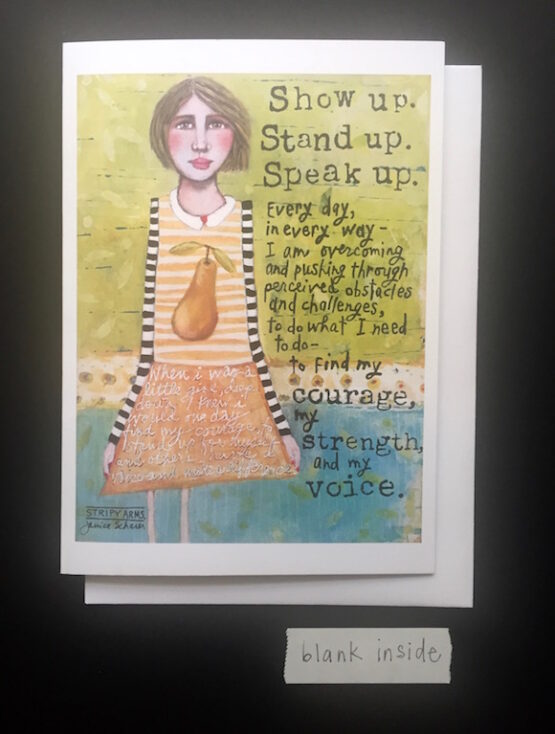 Show up.
Stand up.
Speak up.
Every day,
in every way -
I am overcoming
and pushing through
perceived obstacles
and challenges,
to do what I need
to do -
to find my
courage,
my
strength,
and my
voice.
When i was a
little girl, deep
down I knew i
would one day
find my courage, to
stand up for myself
and others
and
STRIPY ARMS
Janice Scherer
blank inside